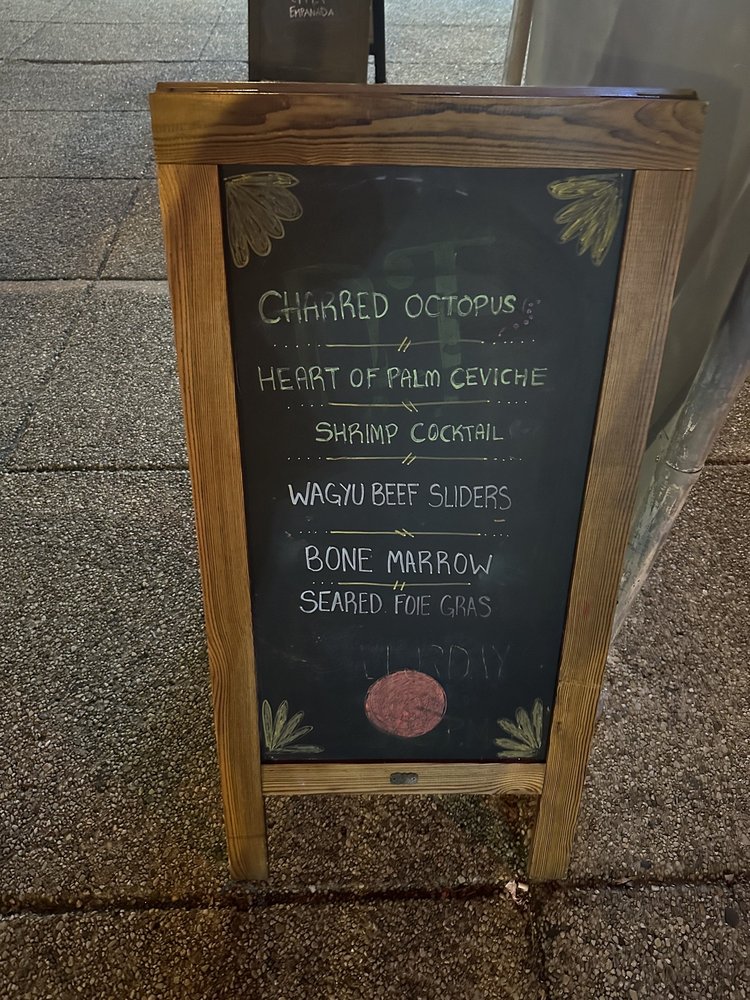 EMPANADA
CHARRED OCTOPUS
HEART OF PALM CEVICHE
SHRIMP COCKTAIL
WAGYU BEEF SLIDERS
BONE MARROW
SEARED FOIE GRAS